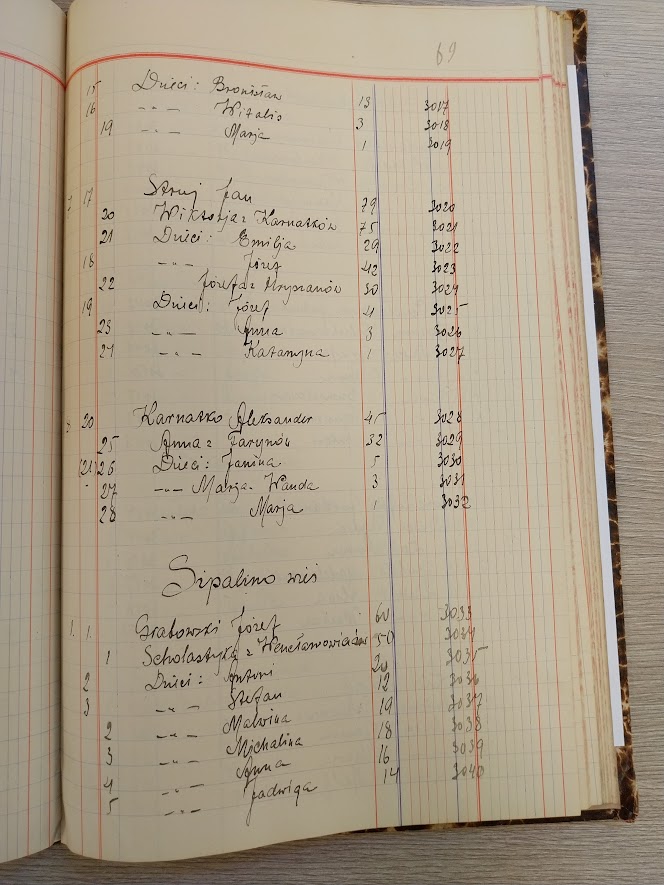 69
15 Dzieci: Bronisław 13 3017
16 -„- Witalis 3 3018
19 -„- Marja 1 3019
7 17 Struj Jan 79 3020
20 Wiktorja z Karnatków 75 3021
21 Dzieci: Emilja 29 3022
18 -„- Józef 42 3023
22 Józefa z 30 3024
19 Dzieci: Józef 4 3025
23 -„- Anna 3 3026
24 -„- Katarzyna 1 3027
8 20 Karnatko Aleksander 45 3028
25 Anna z Farynów 32 3029
(21) 26 Dzieci: Janina 5 3030
27 -„- Marja-Wanda 3 3031
28 -„- Marja 1 3032
Sipalino wieś
1. 1. Grabowski Józef 60 3033
1 Scholastyka z Wencławowiczów 50 3034
2 Dzieci: Antoni 20 3035
3 -„- Stefan 12 3036
2 -„- Malwina 19 3037
3 -„- Michalina 18 3038
4 -„- Anna 16 3039
5 -„- Jadwiga 14 3040